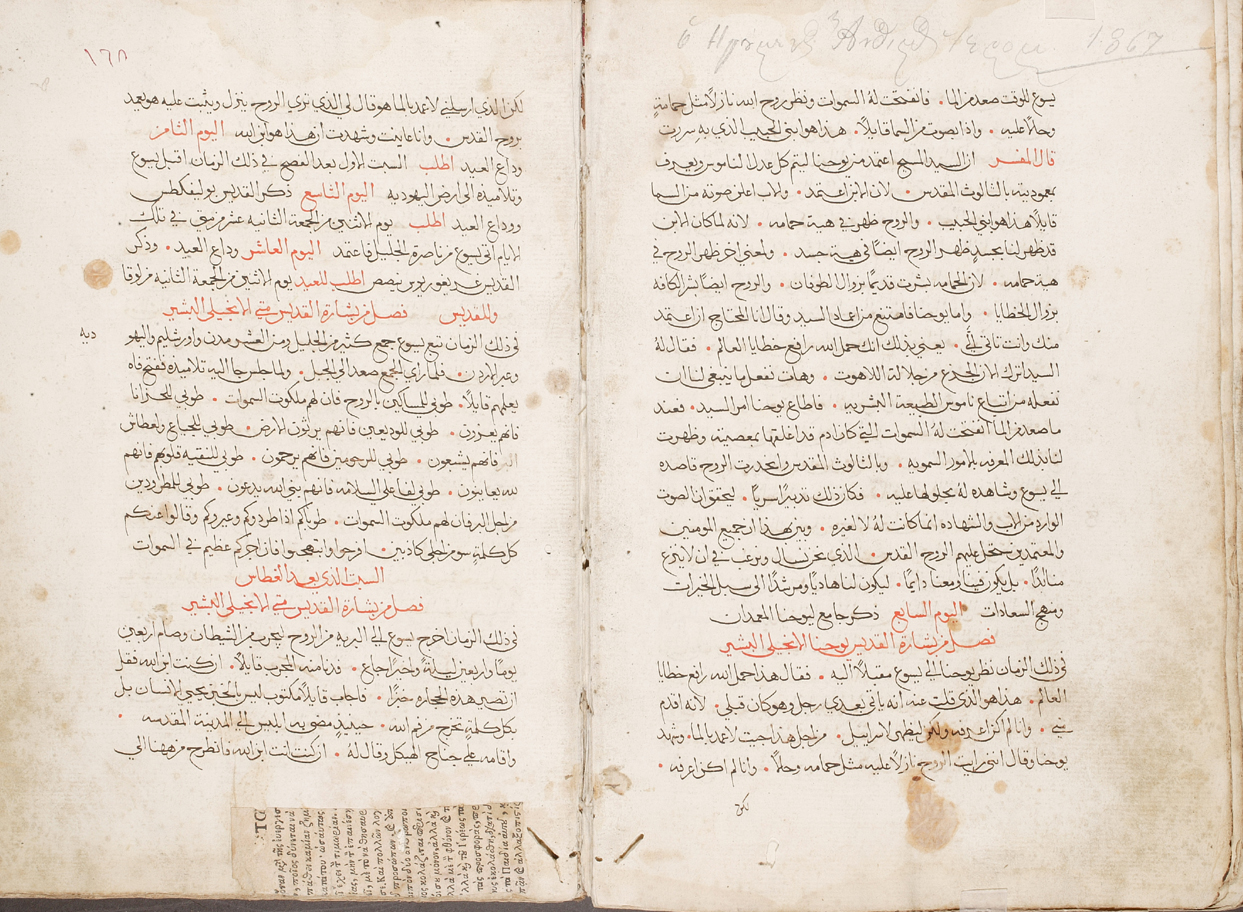 1867
يسوع للوقت صعد من الما • فانفتحت له السموات ونظر روح الله نازلاً مثل حمامةٍ
وحلاً عليه • واذا بصوت من السما قايلاً • هذا هو ابني الحبيب الذي به سررت
قال المفسر ان السيد المسيح اعتمد من يوحنا ليتم كل عدل الناموس ويعرف
بمعموديته بالثالوث المقدس • لان الابن اعتمد • والاب اعلن صوته من السما
قايلاً هذا هو ابني الحبيب • والروح ظهر في هية حمامه • لانه لما كان الابن
قد ظهر لنا بجسدٍ ظهر الروح ايضًا في هية جسد • ولمعني اخر ظهر الروح في
هية حمامه • لان الحمامه بشرت قديمًا بزوال الطوفان • والروح ايضًا بشر الكافه
بزوال الخطايا • واما يوحنا فامتنع من اعماد السيد وقال انا المحتاج ان اعتمد
منك وانت تاتي اليَّ • يعني بذلك انك حمل الله رافع خطايا العالم • فقال له
السيد اترك الان الجزع من جلالة اللاهوت • وهات نفعل ما ينبغي لنا ان
نفعله من اتباع ناموس الطبيعة البشريه • فاطاع يوحنا امر السيد • فعند
ما صعد من الما انفتحت له السموات التي كان ادم قد اغلقها بمعصيته وظهرت
لنا بذلك المعرفه بالامور السمويه • وبالثالوث المقدس وانحدرت الروح قاصده
الي يسوع وشاهده له بحلولها عليه • فكان ذلك تدبيرًا سريًا • ليتحقق ان الصوت
الوارد من الاب والشهاده انما كانت له لا لغيره • وتبين بهذا ان جميع المومنين
والمعتمدين يحل عليهم الروح القدس • الذي نحن نسال ونرغب في ان لا ينزع
منا ابدًا • بل يكون فينا ومعنا دايمًا • ليكون لنا هاديًا ومرشدًا الى سبل الخيرات
ومنهج السعادات اليوم السابع ذكر جامع ليوحنا المعمدان
فصل من بشارة القديس يوحنا الانجيلي البشير
في ذلك الزمان نظر يوحنا الي يسوع مقبلاً اليه • فقال هذا حمل الله رافع خطايا
العالم • هذا هو الذي قلت عنه انه ياتي بعدي رجل وهو كان قبلي • لانه اقدم
مني • وانا لم اكن اعرفه ولكن ليظهر لاسراييل • من اجل هذا جيت لاعمد بالما • وشهد
يوحنا وقال انني رايت الروح نازلاً عليه مثل حمامه وحلاً • وانا لم اكن اعرفه •
لكن
١٦٨
لكن الذي ارسلني لاعمد بالما هو قال لي الذي تري الروح ينزل ويثبت عليه هو يعمد
بروح القدس • وانا عاينت وشهدت ان هذا هو ابن الله اليوم الثامن
وداع العيد اطلب السبت الاول بعد الفصح في ذلك الزمان اقبل يسوع
وتلاميذه الى ارض اليهوديه اليوم التاسع ذكر القديس بوليفكطس
ووداع العيد اطلب يوم الاثنين من الجمعة الثانيه عشر مرقس في تلك
الايام اتي يسوع من ناصرة الجليل فاعتمد اليوم العاشر وداع العيد • وذكر
القديس غريغوريوس نيصص اطلب للعيد يوم الاثنين من الجمعة الثانيه من لوقا
وللقديس فصل من بشارة القديس متي الانجيلي البشير
في ذلك الزمان تبع يسوع جمع كثير من الجليل ومن العشر مدن واورشليم واليهو
ديه
وعبر الاردن • فلما راي الجمع صعد الي الجبل • ولما جلس جا اليه تلاميذه ففتح فاه
يعلمهم قايلاً • طوبي للمساكين بالروح فان لهم ملكوت السموات • طوبي للحزانا
فانهم يعزون • طوبي للودعين فانهم يرثون الارض • طوبي للجياع والعطاش
فانهم يشبعون • طوبي للرحومين فانهم يرحمون • طوبي للنقيه قلوبهم فانهم
لله يعاينون • طوبي لفاعلي السلامه فانهم بني الله يدعون • طوبي للمطرودين
من اجل البر فان لهم ملكوت السموات • طوباكم اذا طردوكم وعيروكم وقالوا عنكم
كل كلمة سو من اجلي كاذبين • افرحوا وابتهجوا فان اجركم عظيم في السموات
السبت الذي بعد الغطاس
فصل من بشارة القديس متي الانجيلي البشير
في ذلك الزمان اخرج يسوع الي البريه من الروح ليجرب من الشيطان وصام اربعين
يومًا واربعين ليلةً واخيرًا جاع • فدنا منه المجرب قايلاً • ان كنت ابن الله فقل
ان تصير هذه الحجاره خبزًا • فاجاب قايلاً مكتوب ليس بالخبز يحيي الانسان بل
بكل كلمةٍ تخرج من فم الله • حينيذٍ مضي به ابليس الي المدينة المقدسه •
واقامه علي جناح الهيكل وقال له • ان كنت انت ابن الله فانطرح من ههنا الي